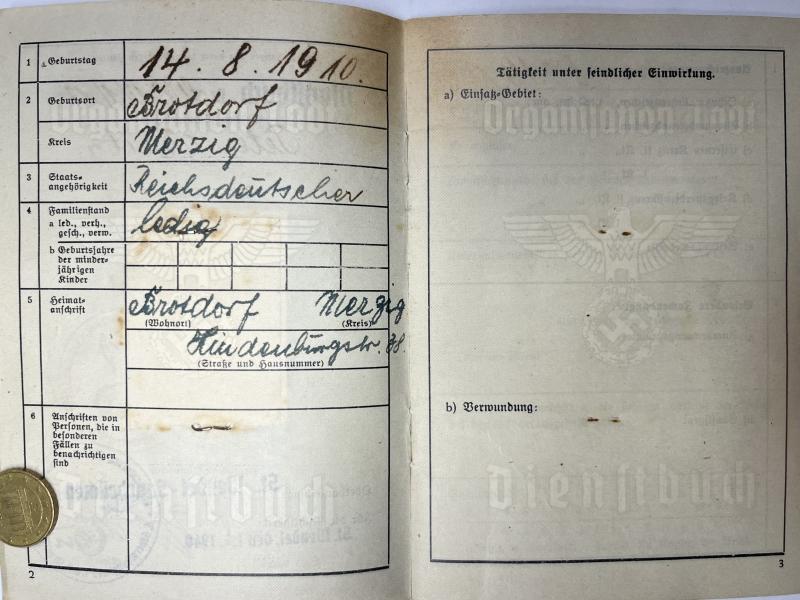 1 Geburtstag 14. 8. 1910.
2 Geburtsort Brotdorf
Kreis Merzig
3 Staats-
angehörigkeit Reichsdeutscher
4 Familienstand
a led., verh.,
gesch., verw. ledig
b Geburtsjahre
der minder-
jährigen
Kinder
5 Heimat-
anschrift Brotdorf Merzig
(Wohnort) (Kreis)
Hindenburgstr. 38.
(Straße und Hausnummer)
6 Anschriften von
Personen, die in
besonderen
Fällen zu
benachrichtigen
sind
2
Tätigkeit unter feindlicher Einwirkung.
a) Einsatz-Gebiet:
Organisation Todt
b) Verwundung:
Dienstbuch
3